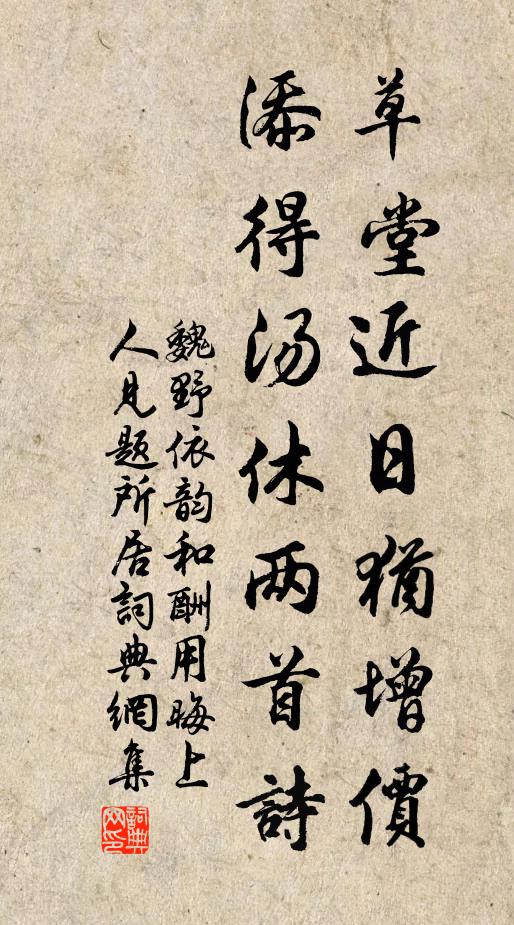 草堂近日犹增價
添得汤休两首詩
魏野依韵和酬用晦上
人見題所居詞典網集
詞典
网印